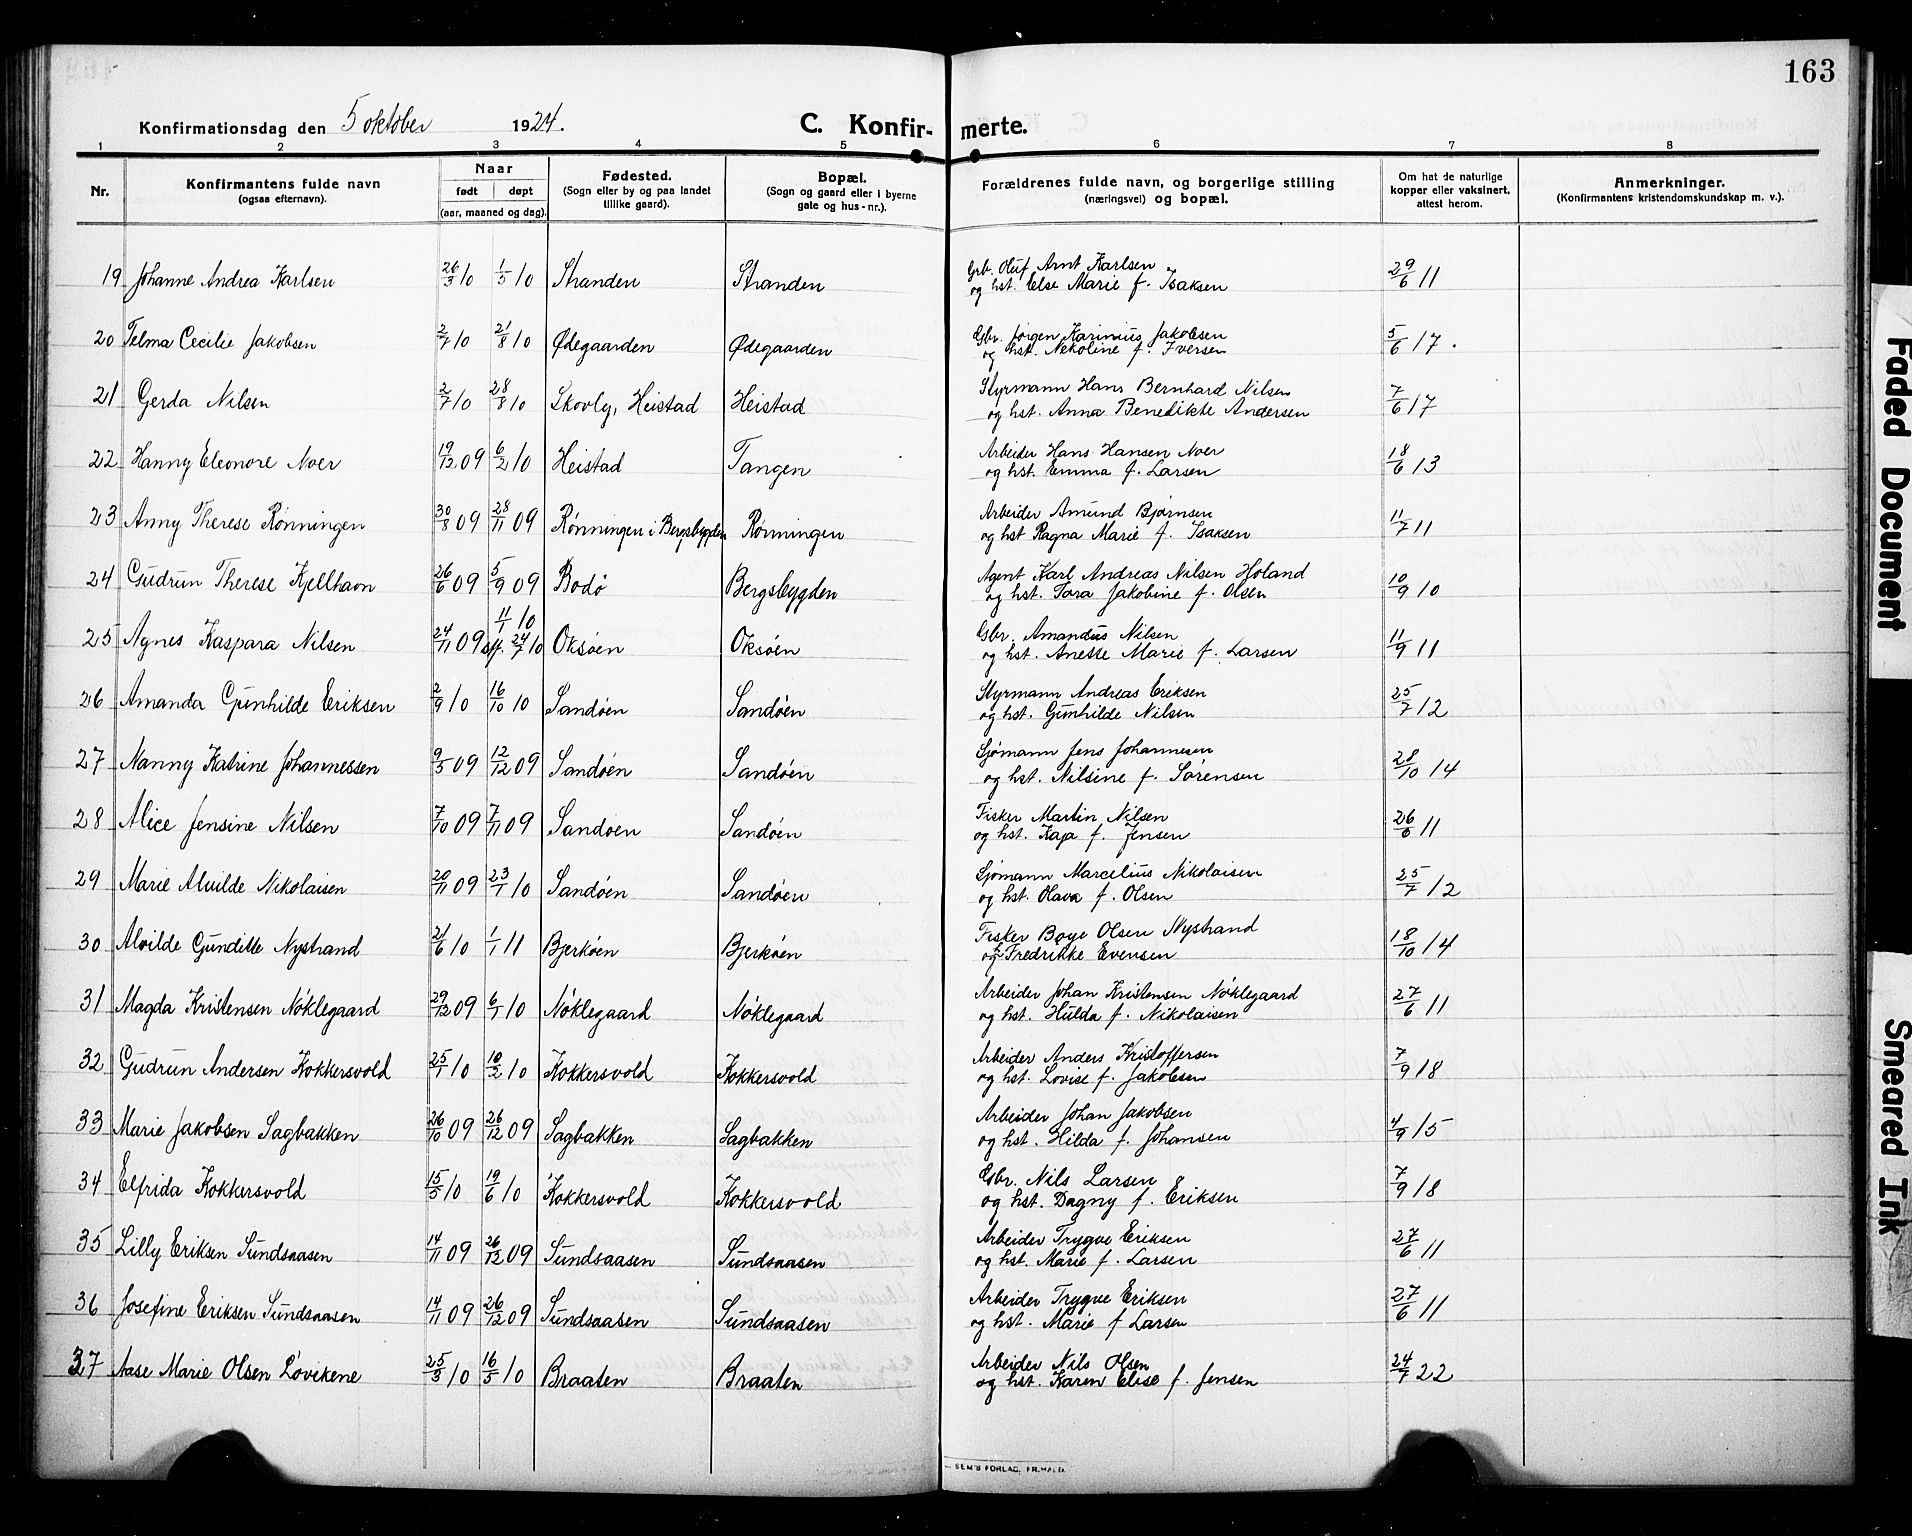 163
Konfirmationsdag den 5 oktober 1924.
C. Konfir- merte.
1 2 3 4 5 6 7 8
Nr.
Konfirmantens fulde navn
(ogsaa efternavn).
Naar
født døpt
(aar, maaned og dag).
Fødested.
(Sogn eller by og paa landet
tillike gaard).
Bopæl.
(Sogn og gaard eller i byerne
gate og hus-nr.).
Forældrenes fulde navn, og borgerlige stilling
(næringsvei) og bopæl.
Om hat de naturlige
kopper eller vaksinert,
attest herom.
Anmerkninger.
(Konfirmantens kristendomskundskap m. v.).
19 Johanne Andrea Karlsen 26/3 10 1/5 10 Stranden Stranden Grb. Oluf Arnt Karlsen 29/6 11
og hst. Else Marie f. Isaksen
20 Telma Cecilie Jakobsen 2/7 10 21/8 10 Ødegaarden Ødegaarden Gbr. Jørgen Karinius Jakobsen 5/6 17.
og hst. Nekoline f. Iversen
21 Gerda Nilsen 2/7 10 28/8 10 Skovly, Heistad Heistad Styrmann Hans Bernhard Nilsen 7/6 17
og hst. Anna Benedikte Andersen
22 Hanny Eleonore Noer 19/12 09 6/2 10 Heistad Tangen Arbeider Hans Hansen Noer 18/6 13
og hst. Emma f. Larsen
23 Anny Therese Rønningen 30/8 09 28/11 09 Rønningen i Bergsbygden Rønningen Arbeider Amund Bjørnsen 11/7 11
og hst Ragna Marie f. Isaksen
24 Gudrun Therese Kjellhaon 26/6 09 5/9 09 Bodø Bergsbygden Agent Karl Andreas Nilsen Høland 10/9 10
og hst. Tora Jakobine f. Olsen
1/1 10
25 Agnes Kaspara Nilsen 24/11 09 stf. 24/7 10 Oksøen Oksøen Gbr. Amandus Nilsen 11/9 11
og hst. Anette Marie f. Larsen
26 Amanda Gunhilde Eriksen 2/9 10 16/10 10 Sandøen Sandøen Styrmann Andreas Eriksen 25/7 12
og hst. Gunhilde Nilsen
27 Nanny Katrine Johannessen 9/5 09 12/12 09 Sandøen Sandøen Sjømann Jens Johannesen 28/10 14
og hst. Nilsine f. Sørensen
28 Alice Jensine Nilsen 7/10 09 7/11 09 Sandøen Sandøen Fisker Martin Nilsen 26/6 11
og hst. Kaja f. Jensen
29 Marie Alvilde Nikolaisen 20/11 09 23/1 10 Sandøen Sandøen Sjømann Marcelius Nikolaisen 25/7 12
og hst. Olava f. Olsen
30 Alvilde Gunditte Nystrand 21/6 10 1/1 11 Bjerkøen Bjerkøen Fisker Boye Olsen Nystrand 18/10 14
og Fredrikke Evensen
31 Magda Kristensen Nøklegaard 29/12 09 6/1 10 Nøklegaard Nøklegaard Arbeider Johan Kristensen Nøklegaard 27/6 11
og hst. Hulda f. Nikolaisen
32 Gudrun Andersen Kokkersvold 25/1 10 10/2 10 Kokkersvold Kokkersvold Arbeider Anders Kristoffersen 7/9 18
og hst. Lovise f. Jakobsen
33 Marie Jakobsen Sagbakken 26/10 09 26/12 09 Sagbakken Sagbakken Arbeider Johan Jakobsen 4/9 15
og hst. Hilda f. Johansen
34 Elfrida Kokkersvold 15/5 10 19/6 10 Kokkersvold Kokkersvold Gbr. Nils Larsen 7/9 18
og hst. Dagny f. Eriksen
35 Lilly Eriksen Sundsaasen 14/11 09 26/12 09 Sundsaasen Sundsaasen Arbeider Trygve Eriksen 27/6 11
og hst. Marie f. Larsen
36 Josefine Eriksen Sundsaasen 14/11 09 26/12 09 Sundsaasen Sundsaasen Arbeider Trygve Eriksen 27/6 11
og hst. Marie f Larsen
37 Aase Marie Olsen Løvikene 25/3 10 16/5 10 Braaten Braaten Arbeider Nils Olsen 24/7 22
og hst. Karen Elise f. Jensen
SEM'S FORLAG, FR.HALD
Faded Document
Smeared Ink